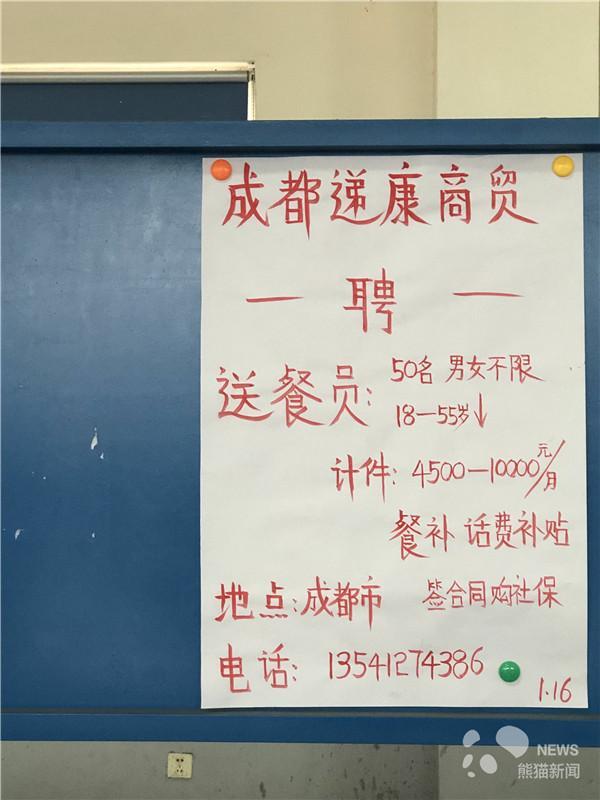 成都递康商贸
一 聘 一
送餐员: 50名 男女不限
18—55岁↓
计件: 4500—10000元/月
餐补 话费补贴
地点:成都市 签合同购社保
电话: 13541274386
1.16
NEWS
熊猫新闻